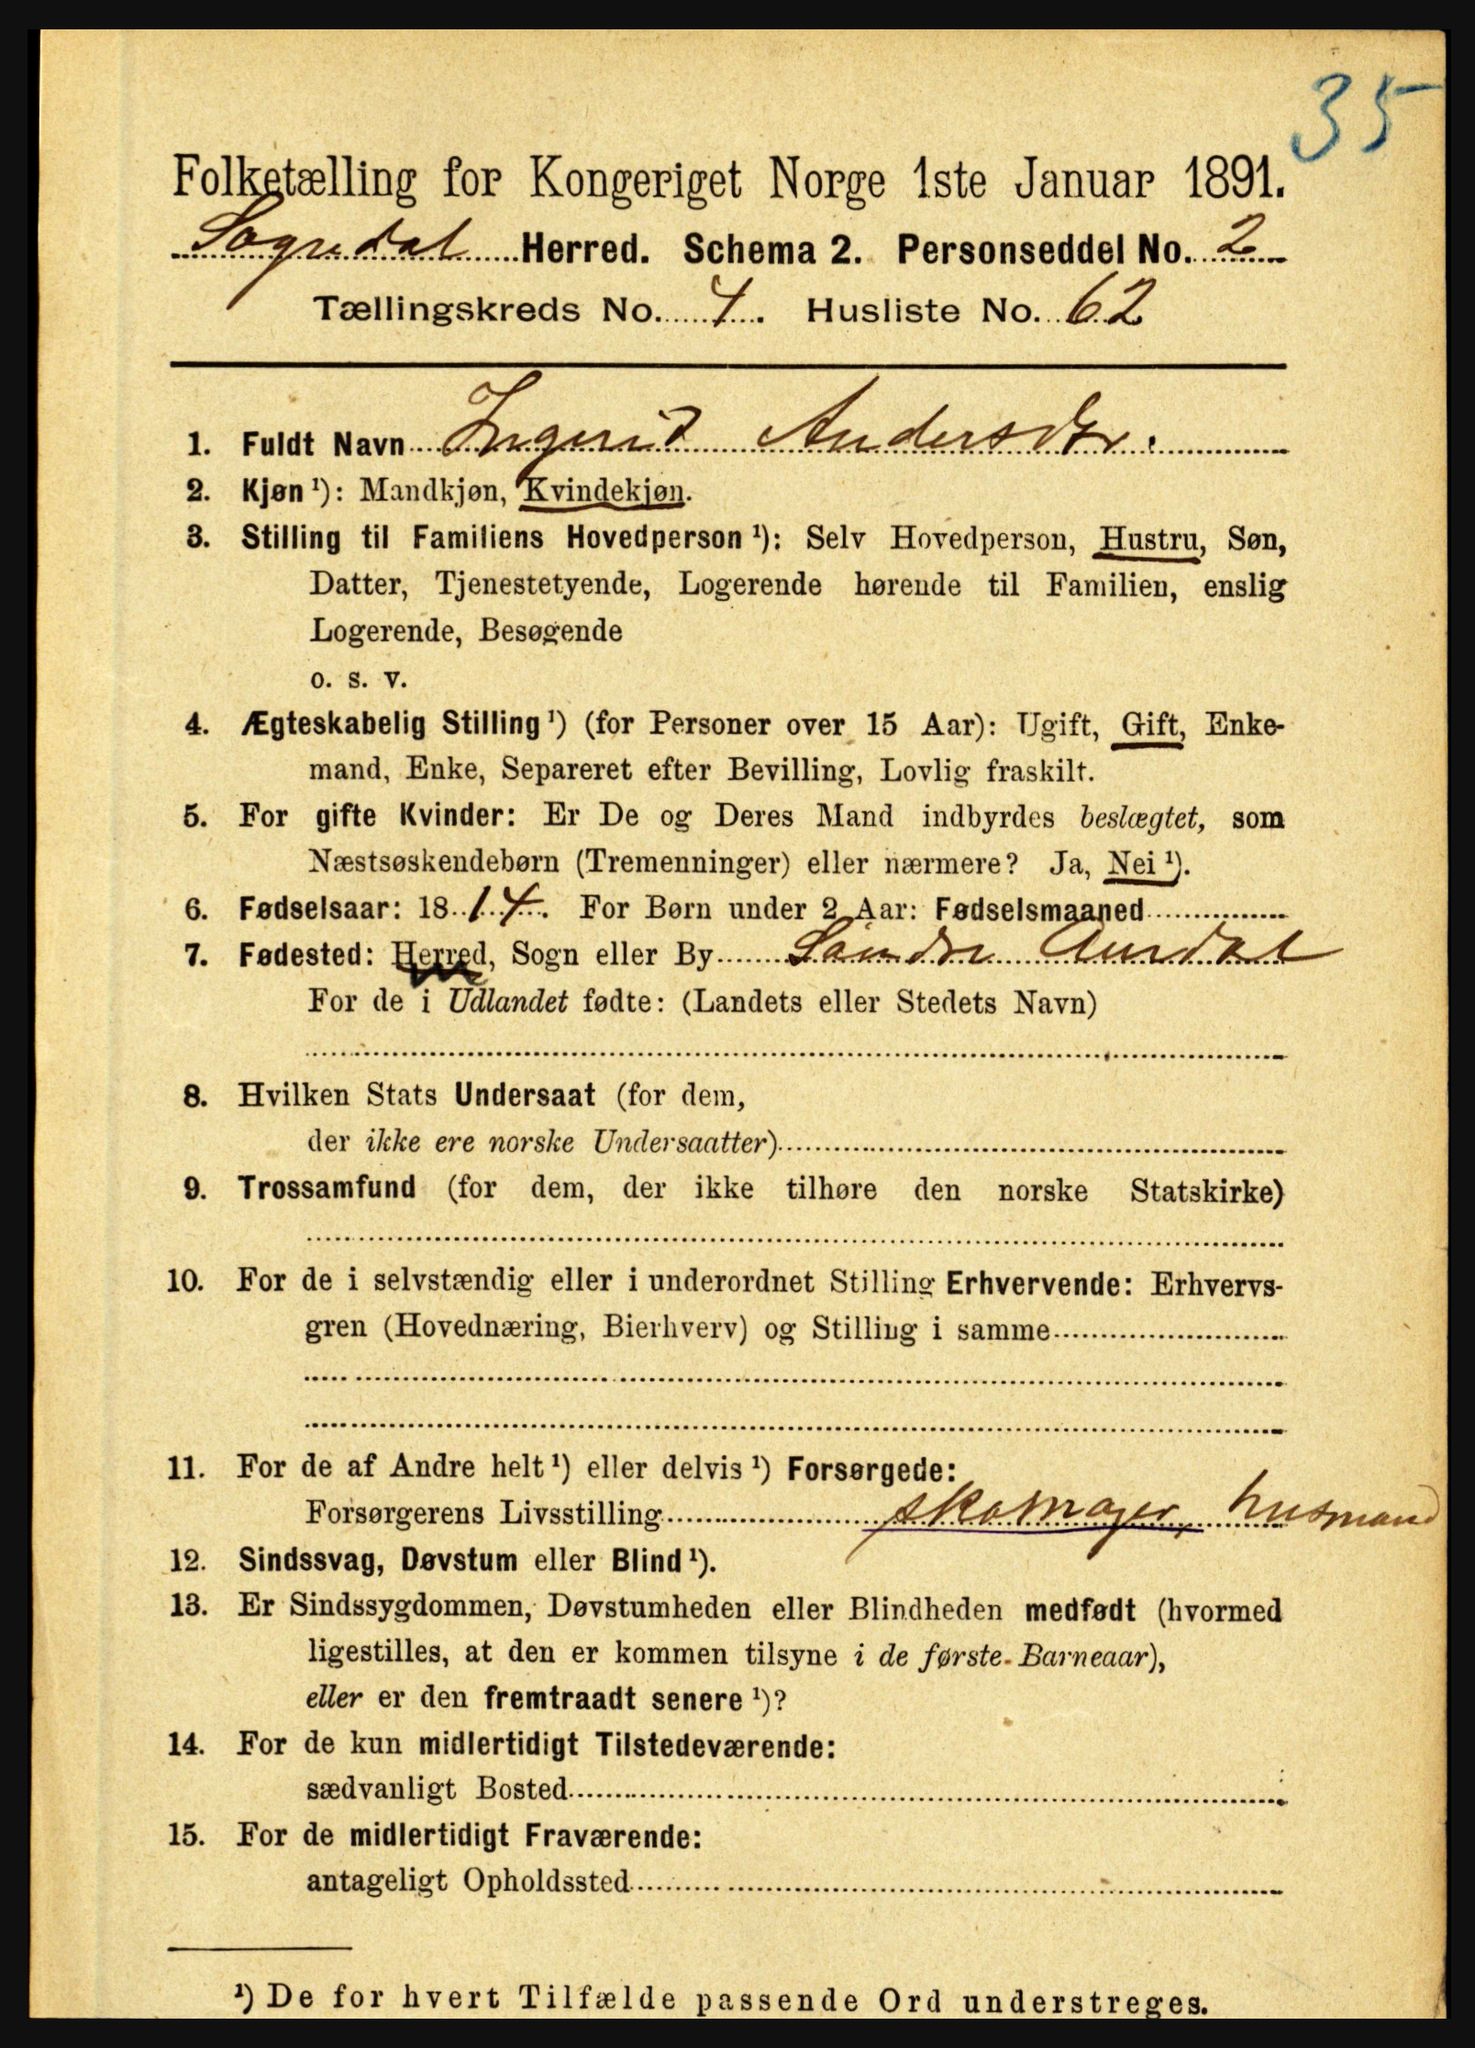 35
Folketælling for Kongeriget Norge 1ste Januar 1891.
Sogndal Herred. Schema 2. Personseddel No. 2
Tællingskreds No. 4. Husliste No. 62
1. Fuldt Navn Ingerid Andersdtr.
2. Kjøn ¹): Mandkjøn, Kvindekjøn.
3. Stilling til Familiens Hovedperson ¹): Selv Hovedperson, Hustru, Søn,
Datter, Tjenestetyende, Logerende hørende til Familien, enslig
Logerende, Besøgende
o. s. v.
4. Ægteskabelig Stilling ¹) (for Personer over 15 Aar): Ugift, Gift, Enke-
mand, Enke, Separeret efter Bevilling, Lovlig fraskilt.
5. For gifte Kvinder: Er De og Deres Mand indbyrdes beslægtet, som
Næstsøskendebørn (Tremenninger) eller nærmere? Ja, Nei ¹).
6. Fødselsaar: 18 14. For Børn under 2 Aar: Fødselsmaaned
7. Fødested: Herred, Sogn eller By Søndre Aurdal
For de i Udlandet fødte: (Landets eller Stedets Navn)
8. Hvilken Stats Undersaat (for dem,
der ikke ere norske Undersaatter)
9. Trossamfund (for dem, der ikke tilhøre den norske Statskirke)
10. For de i selvstændig eller i underordnet Stilling Erhvervende: Erhvervs-
gren (Hovednæring, Bierhverv) og Stilling i samme
11. For de af Andre helt ¹) eller delvis ¹) Forsørgede:
Forsørgerens Livsstilling skomager, husmand
12. Sindssvag, Døvstum eller Blind ¹).
13. Er Sindssygdommen, Døvstumheden eller Blindheden medfødt (hvormed
ligestilles, at den er kommen tilsyne i de første Barneaar),
eller er den fremtraadt senere ¹)?
14. For de kun midlertidigt Tilstedeværende:
sædvanligt Bosted
15. For de midlertidigt Fraværende:
antageligt Opholdssted
¹) De for hvert Tilfælde passende Ord understreges.